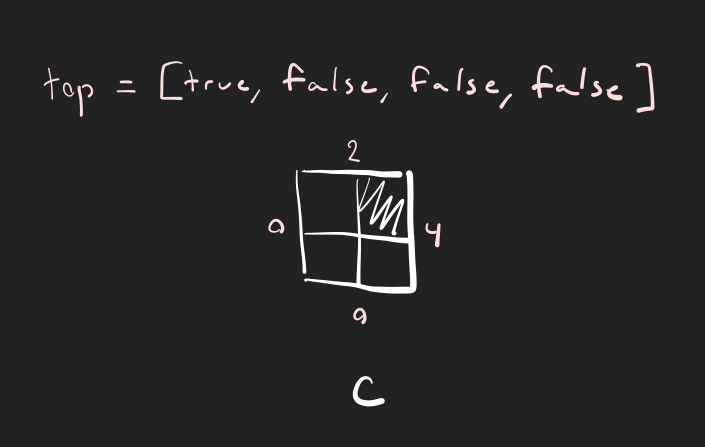 top = [true, false, false, false]
2
0 4
C